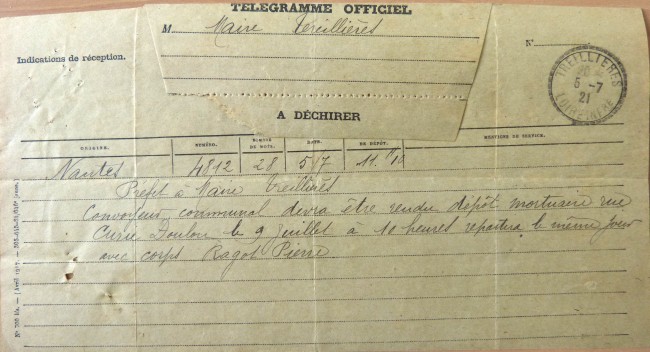 TÉLÉGRAMME OFFICIEL
M Maire Treillières
Indications de réception.
N°
TREILLIÈRES
5 -7
21
LOIRE-INFRE
A DÉCHIRER
ORIGINE. NUMÉRO. NOMBRE DE MOTS. DATE. DE DÉPÔT. MENTIONS DE SERVICE.
Nantes 4812 28 5/7 11 h 10
Préfet à Maire Treillières
Convoyeur communal devra être rendu dépôt mortuaire rue
Curie Doulon le 9 juillet à 10 heures repartira le même jour
avec corps Ragot Pierre
N° 700 bis. — (Avril 1917.)